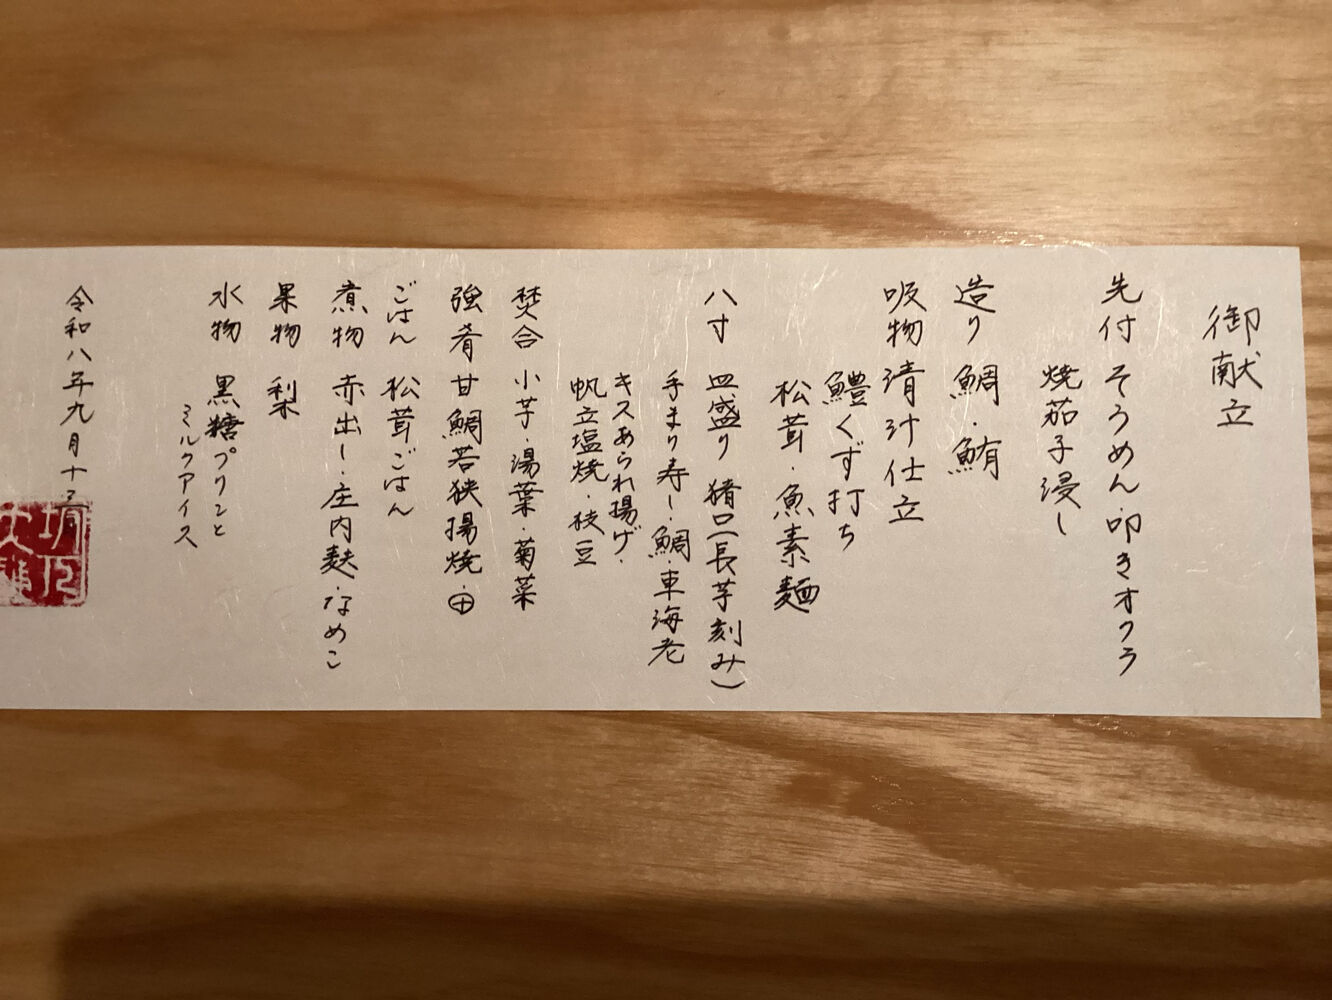 御献立
先付 そうめん・叩きオクラ
焼茄子浸し
造り 鯛・鮪
吸物 清汁仕立
鱧くず打ち
松茸・魚素麺
八寸 皿盛り 猪口(長芋刻み)
手まり寿し 鯛・車海老
キスあられ揚げ・
帆立塩焼・枝豆
焚合 小芋・湯葉・菊菜
強肴 甘鯛若狭揚焼・
ごはん 松茸ごはん
煮物 赤出し・庄内麩・なめこ
果物 梨
水物 黒糖プリンと
ミルクアイス
令和八年九月十